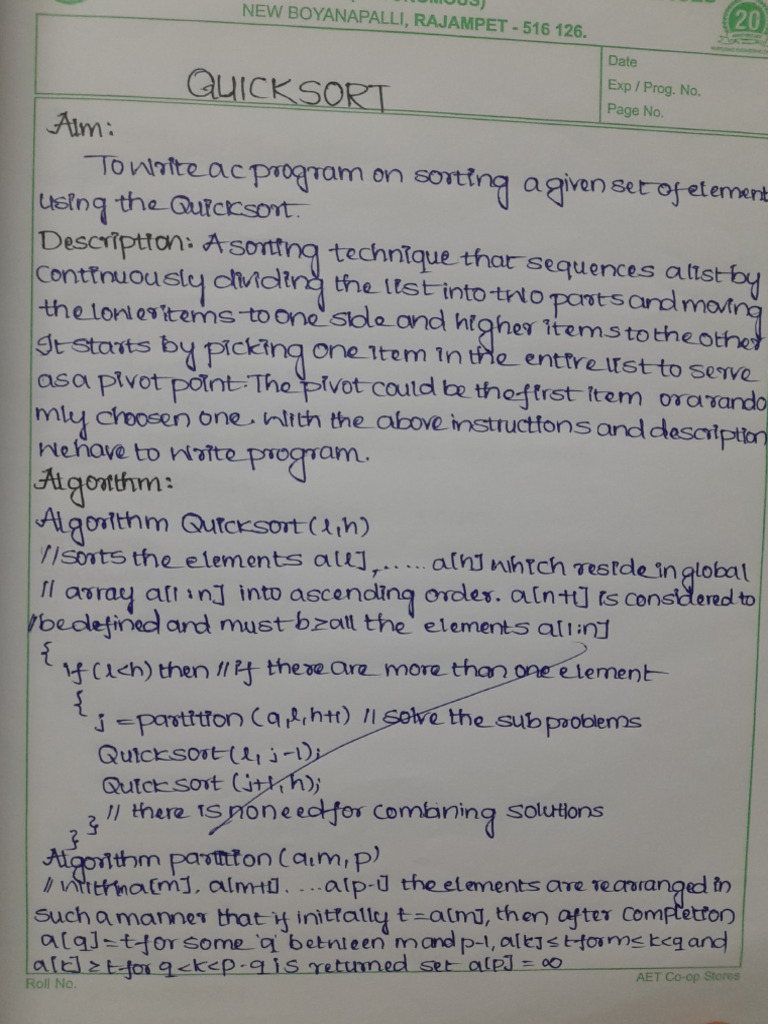 NEW BOYANAPALLI, RAJAMPET - 516 126.
20
Date
Exp / Prog. No.
Page No.
QUICKSORT
Aim:
To write a c program on sorting a given set of element
using the Quicksort.
Description: A sorting technique that sequences a list by
continuously dividing the list into two parts and moving
the lower items to one side and higher items to the other
It starts by picking one item in the entire list to serve
as a pivot point. The pivot could be the first item or a rando
mly choosen one. With the above instructions and description
we have to write program.
Algorithm:
Algorithm Quicksort(l,h)
//sorts the elements a[l],..... a[h] which reside in global
// array a[1:n] into ascending order. a[n+1] is considered to
//be defined and must b≥all the elements a[1:n]
{
if (l<h) then // if there are more than one element
{
j =partition (a,l,h+1) // solve the sub problems
Quicksort(l, j-1);
Quicksort (j+1,h);
} // there is no need for combining solutions
}
Algorithm partition (a,m,p)
// within a[m], a[m+1]. ...a[p-1] the elements are rearranged in
such a manner that if initially t=a[m], then after completion
a[q]=t for some 'q' between m and p-1, a[k]≤t for m≤k<q and
a[k] ≥t for q<k<p. q is returned set a[p] = ∞
Roll No.
AET Co-op Stores